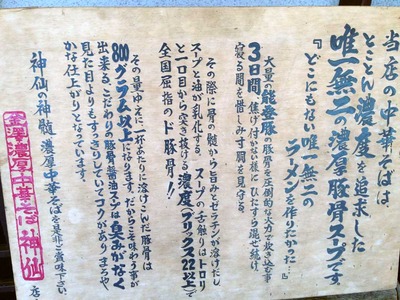 当店の中華そばは、
とことん濃度を追求した
唯一無二の濃厚豚骨スープです。
『どこにもない唯一無二の
ラーメンを作りたかった…』
大量の能登豚の豚骨を圧倒的な火力で炊き込む事
3日間。焦げ付かない様に、ひたすら混ぜ続け、
寝る間を惜しみ寸胴を見守る。
その際に骨の髄から旨みとゼラチンが溶けだし
スープと油が乳化する。スープの舌触りはトロリ
と一口目から突き抜ける濃度(ブリックス22以上)で
全国屈指のド豚骨!!
その量ゆえに一杯あたりに溶けこんだ豚骨は
800グラム以上になります。だからこそ味わう事が
出来る、こだわりの豚骨醤油ラーメンは臭みがなく
見た目よりもすっきりしていてコクがありまろや
かな仕上がりとなっています。
神仙の神髄、濃厚中華そばを是非ご賞味下さい。
金澤濃厚中華そば 神仙
店